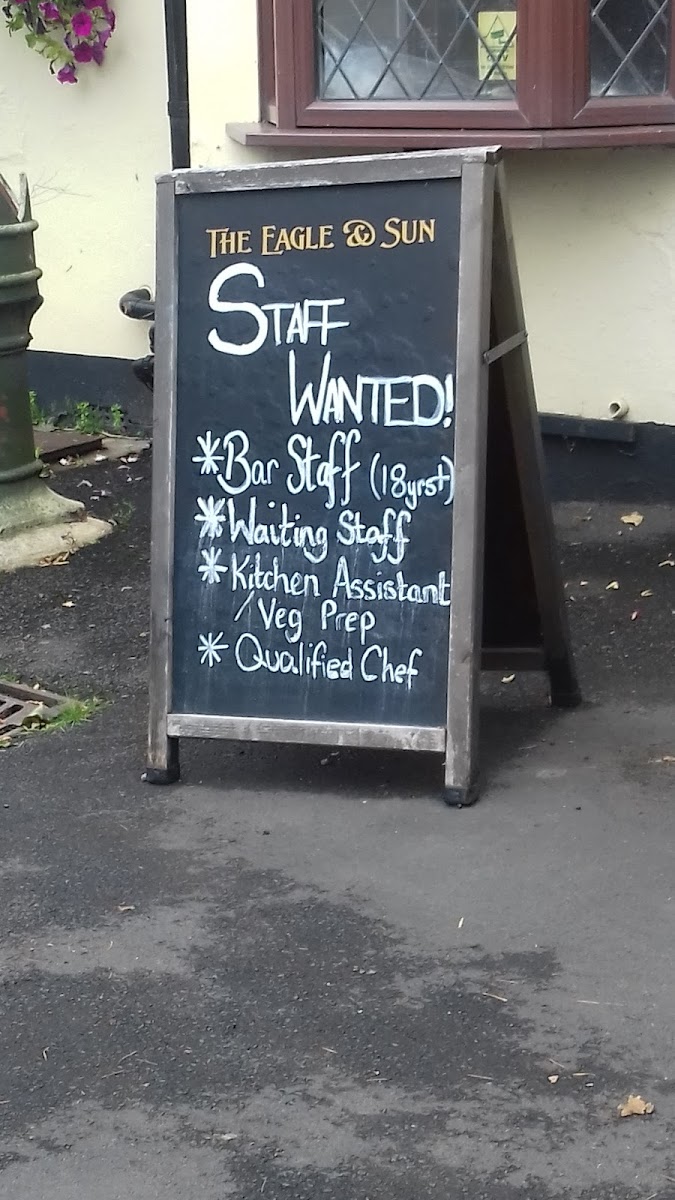 THE EAGLE & SUN
STAFF
WANTED!
* Bar Staff (18yrs+)
* Waiting Staff
* Kitchen Assistant
/Veg Prep
* Qualified Chef